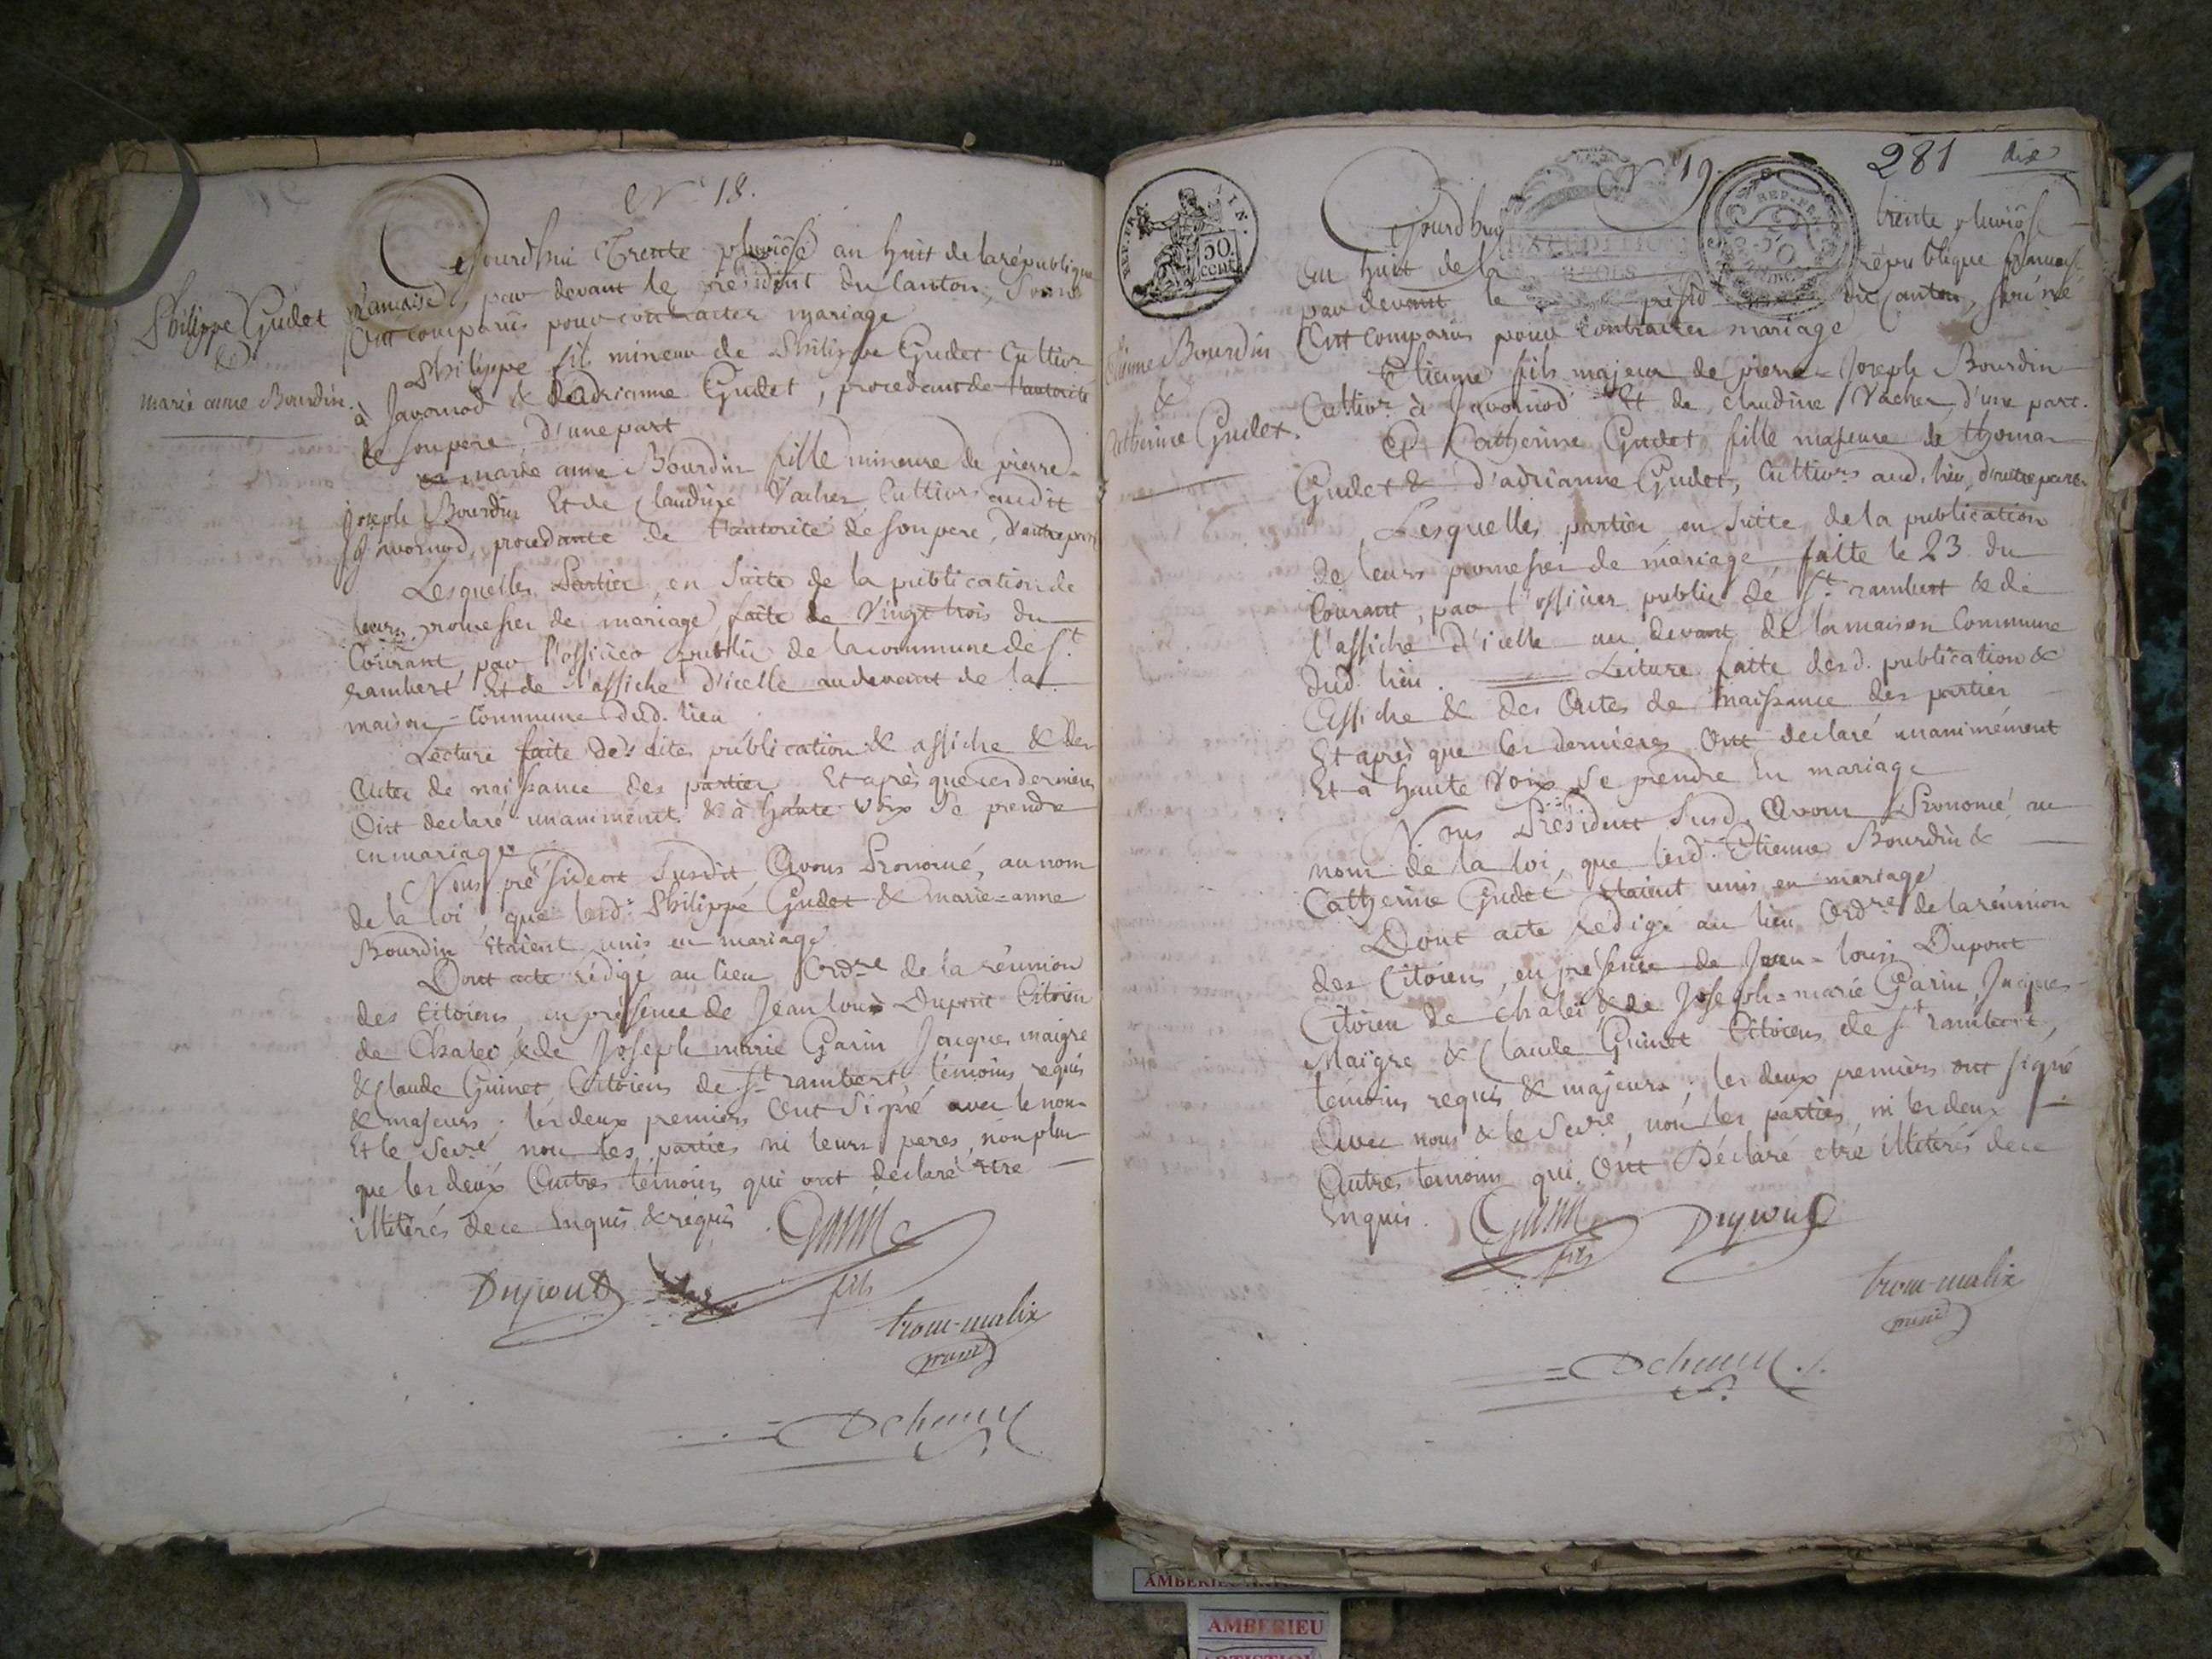 N° 18.
Cejourd'hui Trente pluviôse an huit de la république
francaise, par devant le président du Canton,
Ont comparus pour contracter mariage
Philippe Gudet
&
marie anne Bourdin.
Philippe fils mineur de Philippe Gudet Cultivr
à Javornod & d'adrianne Gudet, procedant de l'autorité
de son pere, d'une part
& marie anne Bourdin fille mineure de pierre-
Joseph Bourdin Et de Claudine Vacher Cultivrs audit
Javornod, procedante de l'autorité de son pere, d'autre part
Lesquelles Parties, en suite de la publication de
leurs promesses de mariage, faite le Vingt trois du
Courant, par l'officier public de la commune de St
rambert Et de l'affiche d'icelle au devant de la
maison-Commune dud. lieu
Lecture faite des dites publication & affiche & des
Actes de naissance des parties Et après que ces dernieres
Ont déclaré unanimement & à haute voix se prendre
en mariage
Nous président susdit Avons Prononcé, au nom
de la loi, que lesd. Philippe Gudet & marie-anne
Bourdin étaient unis en mariage
Dont acte rédigé au lieu Ordre de la réunion
des Citoiens, en présence de Jean louis Dupont Citoien
de Chaley & de Joseph marie Garin Jacques maigre
& Claude Guinet Citoiens de St rambert, témoins requis
& majeurs; les deux premiers Ont signé avec le nous
Et le Secre non les parties ni leurs peres, non plus
que les deux Autres témoins qui ont déclaré être
illitérés de ce Enquis & requis.
Garin
fils
Dupont
trocu-malix
Dehuny
N° 19.
281
dix
REP. FRA.
50
cent
Cejourd'huy trente pluviôse
An huit de la république francaise
par devant le présidt du Canton, soussigné
Ont comparus pour Contracter mariage
Etienne Bourdin
&
Catherine Gudet.
Etienne fils majeur de pierre-Joseph Bourdin
Cultivr à Javornod Et de Claudine Vacher, d'une part.
Et Catherine Gudet fille majeure de thomas
Gudet & d'adrianne Gudet, Cultivrs aud. lieu, d'autre part
Lesquelles parties, en suite de la publication
de leurs promesses de mariage, faite le 23 du
Courant, par l'officier public de St rambert & de
l'affiche d'icelle au devant de la maison Commune
dud. lieu. Lecture faite desd. publication &
Affiche & des Actes de naissance des parties
Et après que les dernieres Ont déclaré unanimément
Et à haute voix se prendre En mariage
Nous Président susd. Avons Prononcé, au
nom de la loi, que lesd. Etienne Bourdin &
Catherine Gudet étaient unis en mariage
Dont acte rédigé au lieu Ordre de la réunion
des Citoiens, en présence de Jean-louis Dupont
Citoien de Chaley & de Joseph-marie Garin, Jacques
Maigre & Claude Guinet Citoiens de St rambert,
témoins requis & majeurs; les deux premiers ont signé
Avec nous & le Secre, non les parties, ni les deux
Autres temoins qui Ont Déclaré etre illitérés de ce
Enquis.
Garin
fils
Dupont
trocu-malix
Dehuny
AMBERIEU
AMBERIEU